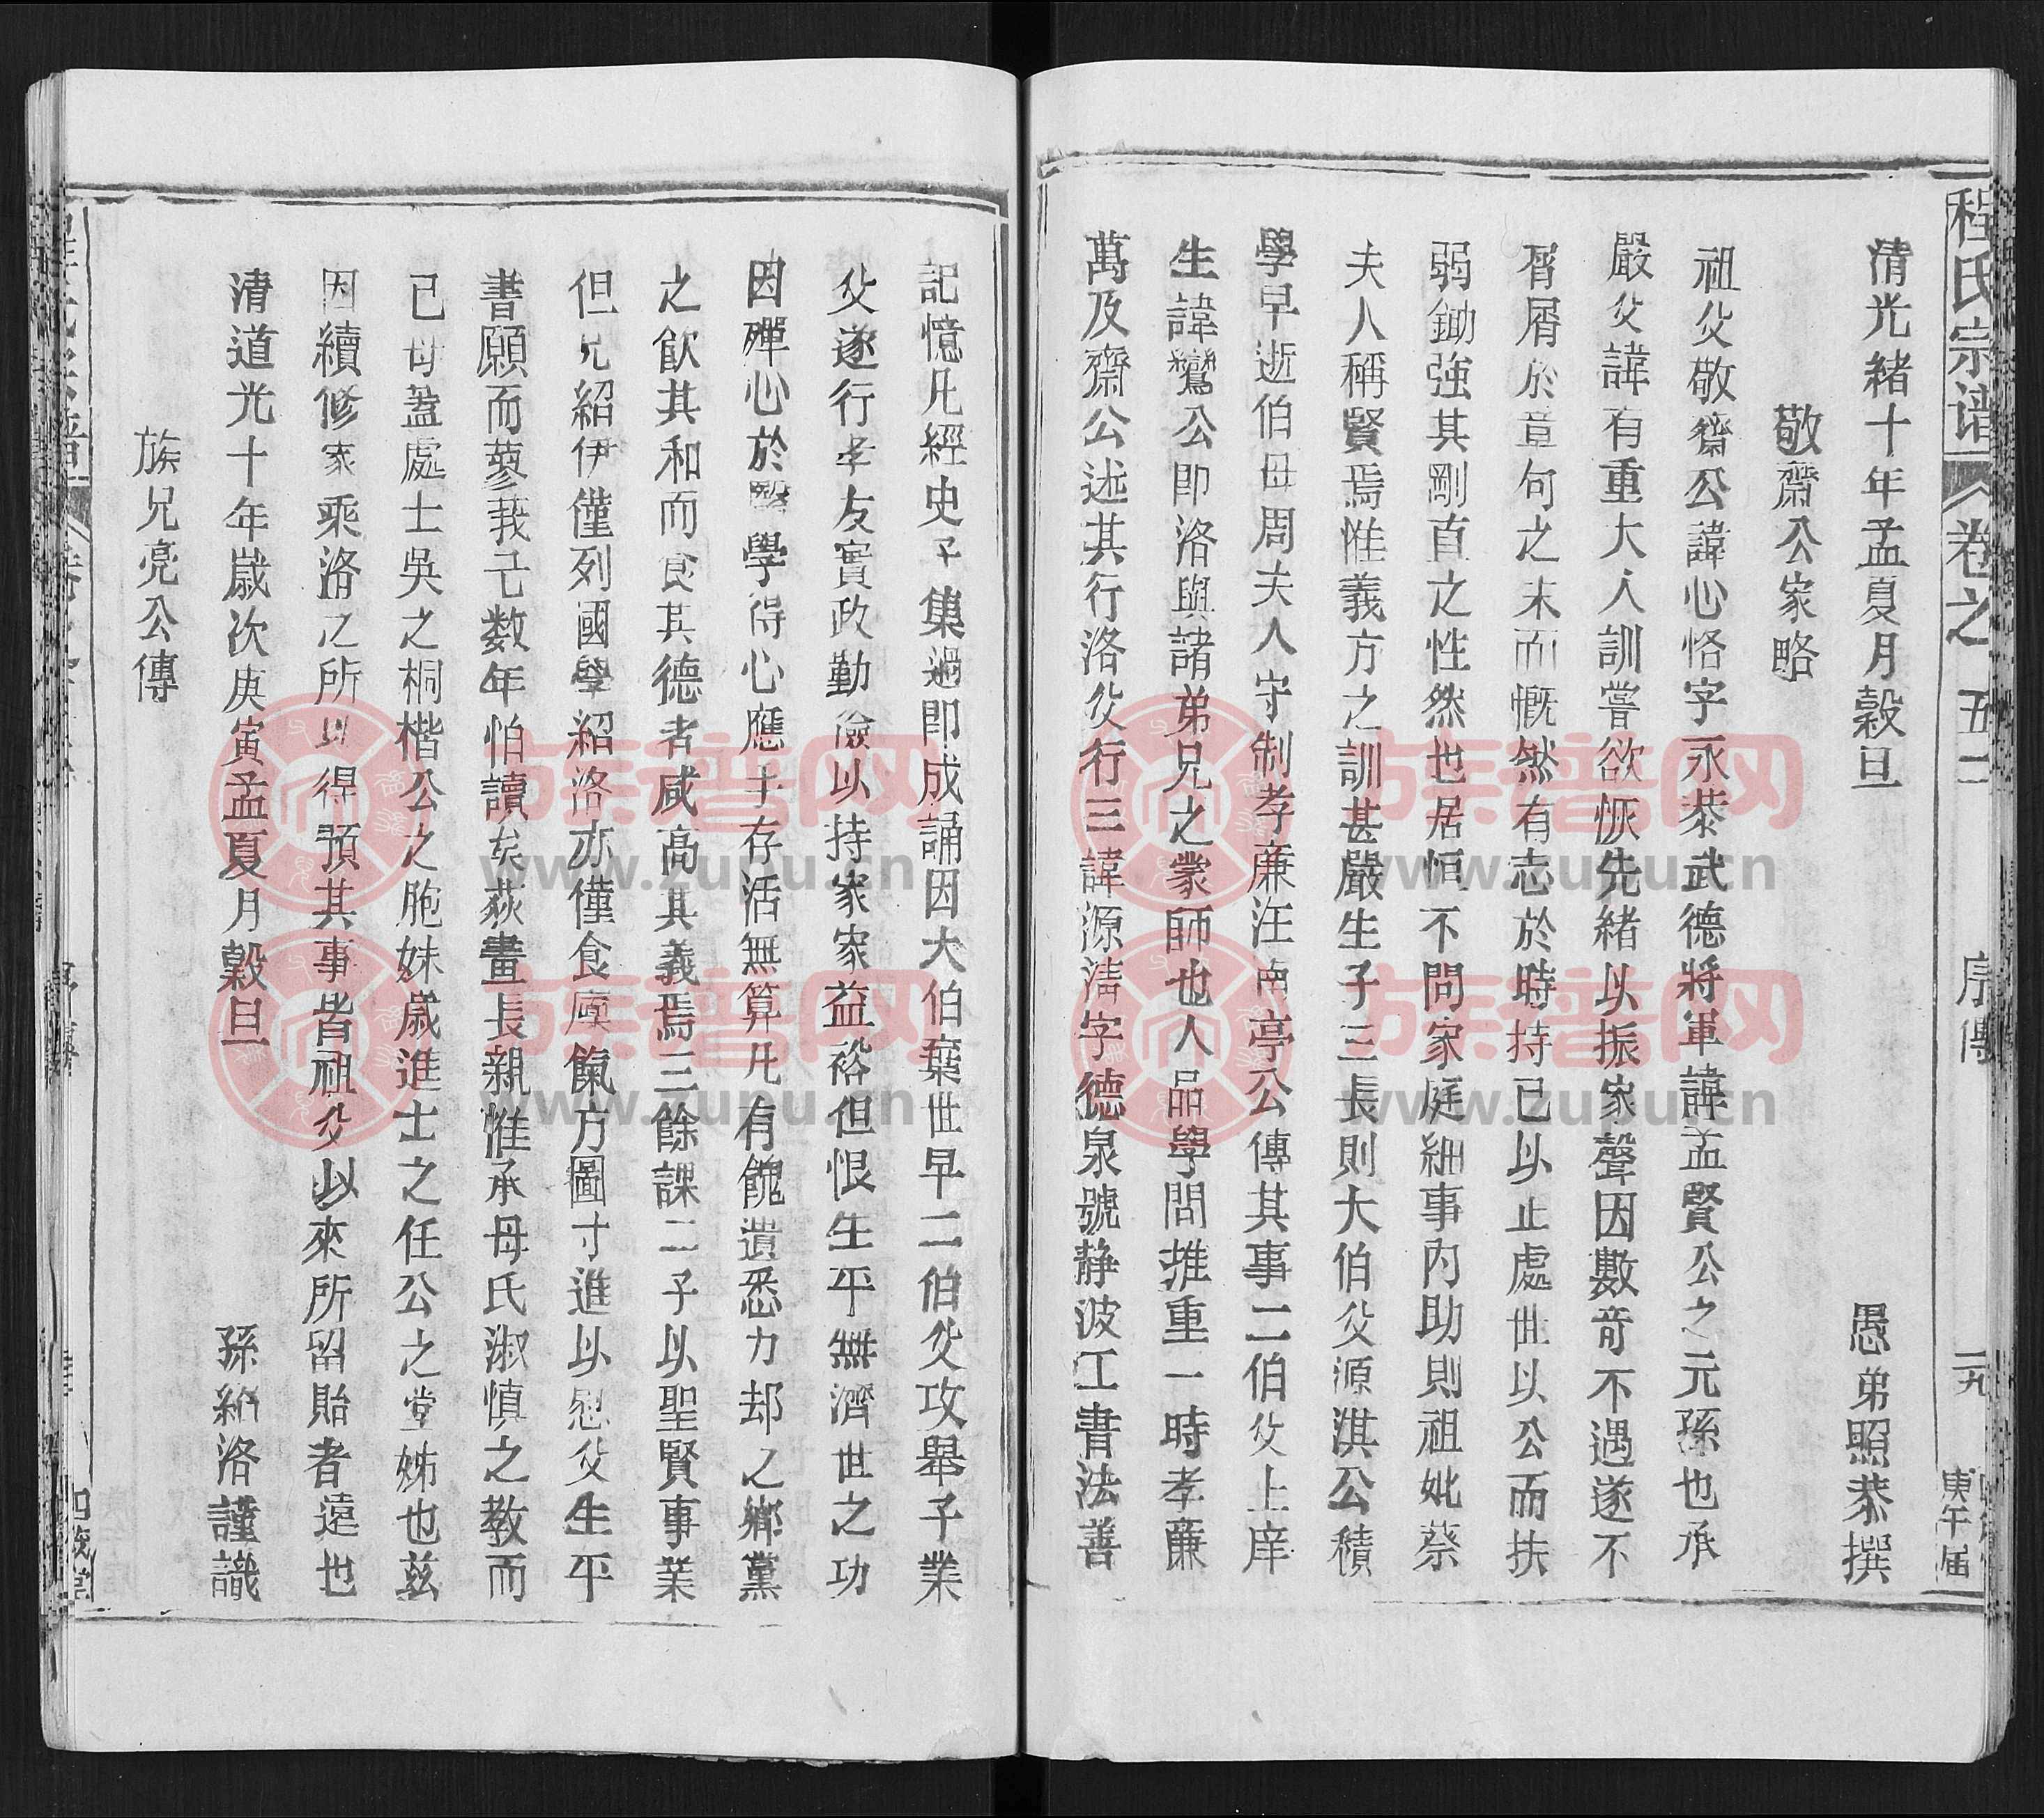 程氏宗谱
卷之五二
序傳
一九
庚午届
清光緒十年孟夏月穀旦
愚弟照恭撰
敬齋公家略
祖父敬齋公諱心恪字永恭武德將軍諱孟賢公之元孫也承
嚴父諱有重大人訓嘗欲恢先緒以振家聲因數奇不遇遂不
屑屑於章句之末而慨然有志於時持已以正處世以公而扶
弱鋤強其剛直之性然也居恒不問家庭細事内助則祖妣蔡
夫人稱賢焉惟義方之訓甚嚴生子三長則大伯父源淇公積
學早逝伯母周夫人守制孝廉汪南亭公傳其事二伯父上庠
生諱鸞公即洛與諸弟兄之蒙師也人品學問推重一時孝廉
萬及齋公述其行洛父行三諱源清字德泉號静波工書法善
記憶凡經史子集過即成誦因大伯棄世早二伯父攻舉子業
父遂行孝友實政勤儉以持家家益裕但恨生平無濟世之功
因殫心於醫學得心應手存活無算凡有餽遺悉力却之鄉黨
之飲其和而食其德者咸高其義焉三餘課二子以聖賢事業
但兄紹伊僅列國學紹洛亦僅食廩餼方圖寸進以慰父生平
書願而蓼莪已数年怕讀矣荻畫長親惟承母氏淑慎之教而
已母蓋處士吳之桐楷公之胞妹歲進士之任公之堂姊也兹
因續修家乘洛之所以得預其事皆祖父以來所留貽者遠也
清道光十年歲次庚寅孟夏月穀旦
孫紹洛謹識
族兄亮公傳
族譜网
www.zupu.cn
族譜网
www.zupu.cn
族譜网
www.zupu.cn
族譜网
www.zupu.cn